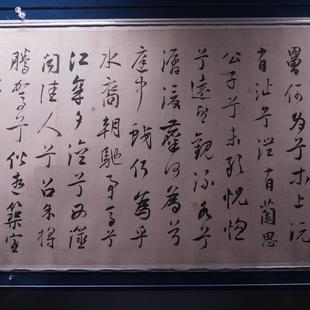 罾何為兮木上沅
有沚兮澧有蘭思
公子兮未敢怳惚
兮遠望觀流水兮
潺湲麋何為兮
庭中蛟何為乎
水裔朝馳予馬兮
江皋夕濟兮西澨
聞佳人兮召余將
騰駕兮偕逝築室